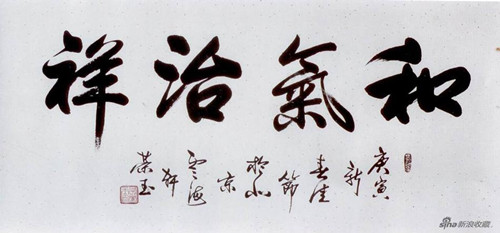 和氣治祥
庚寅
新
春佳
節
於北
京
海
軒
榮玉
sina新浪收藏